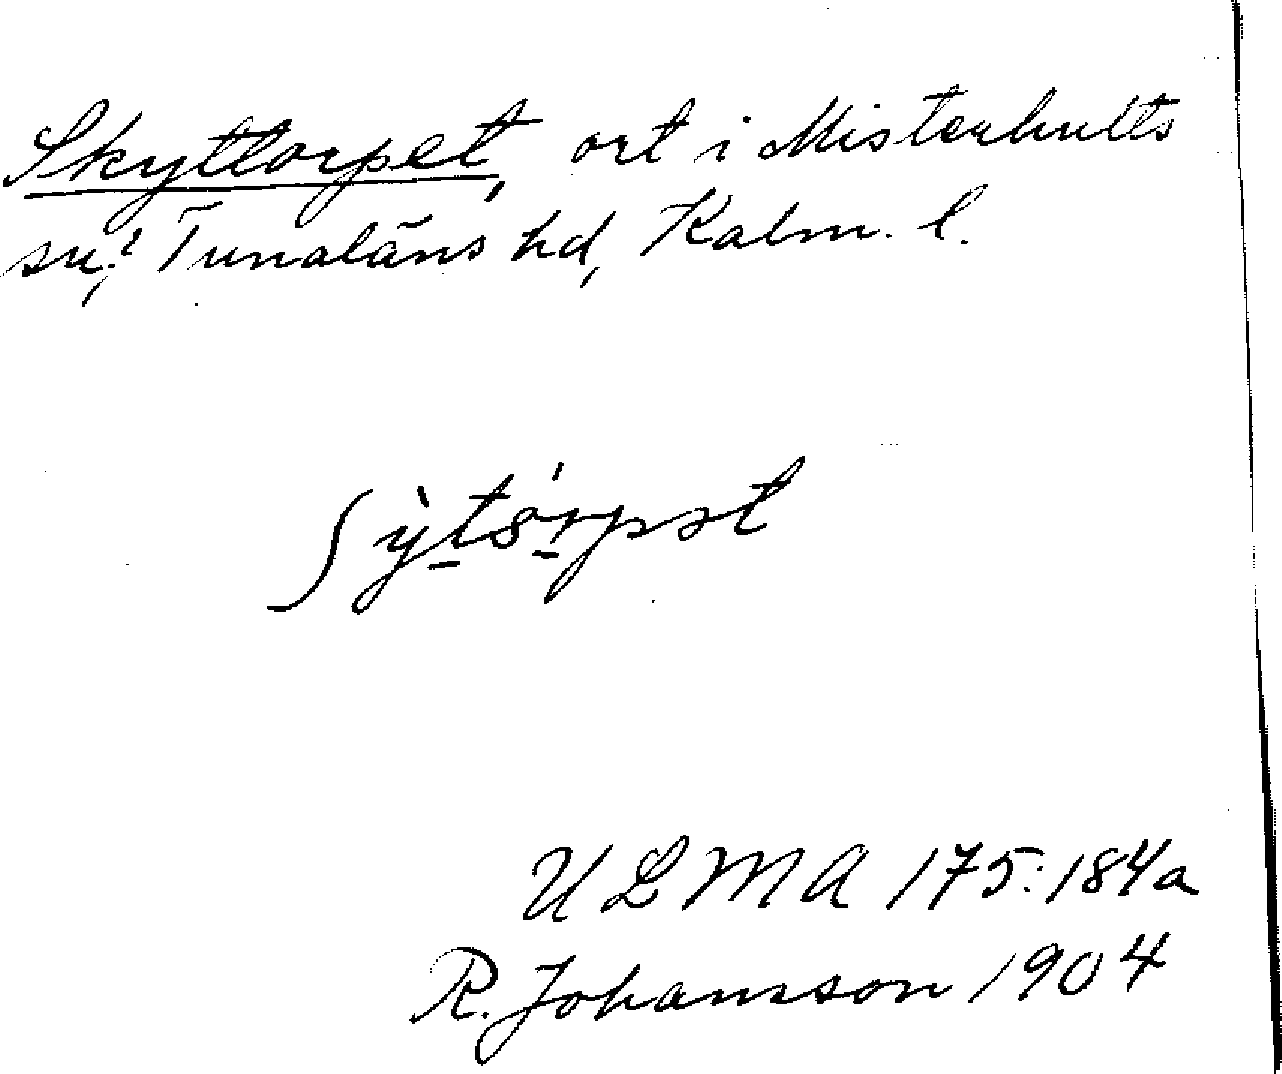 Skyttorpet, ort i Misterhults
sn?, Tunaläns hd, Kalm. l.
ULMA 175:184a
R. Johansson 1904